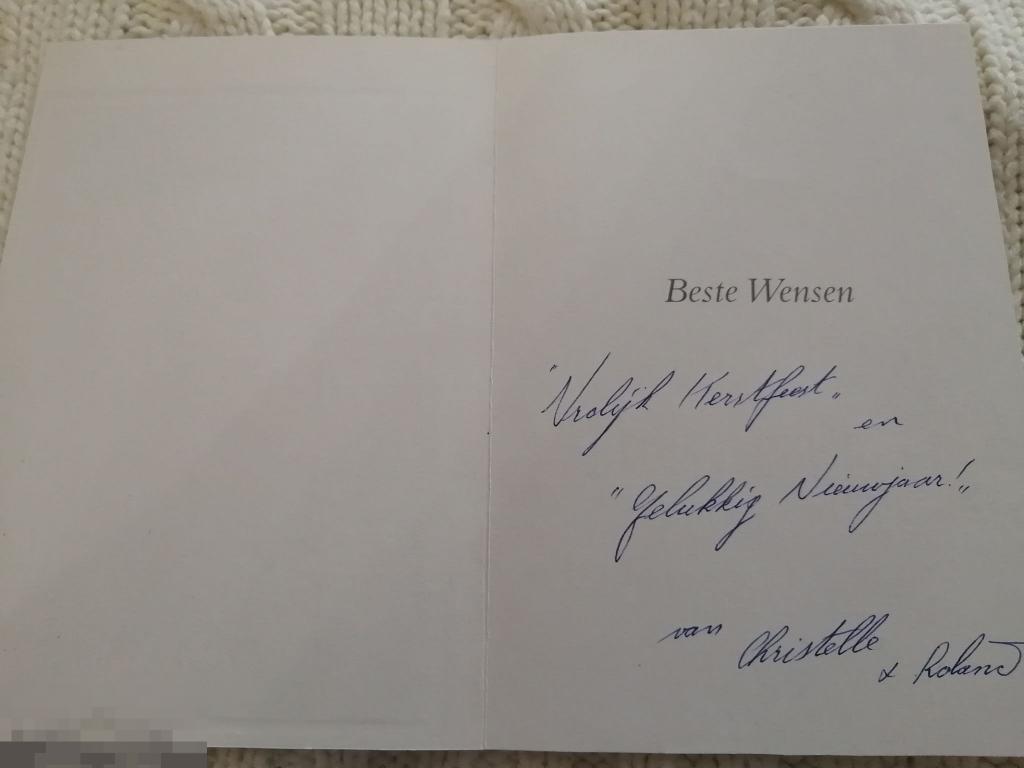 Beste Wensen
"Vrolijk Kerstfeest„
en
"Gelukkig Nieuwjaar!„
van Christelle
& Roland